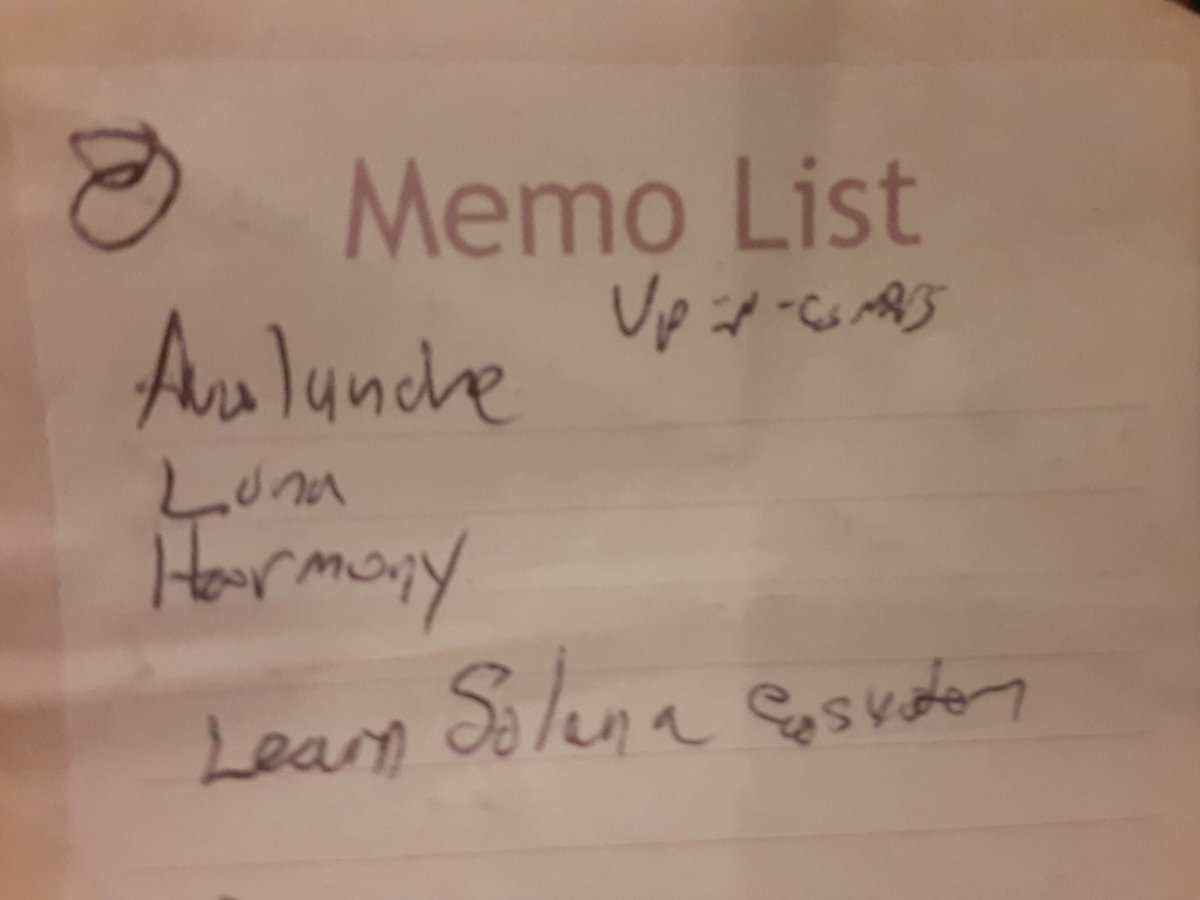 Memo List
Up
Avalanche
Luna
Harmony
Learn Solana ecosystem